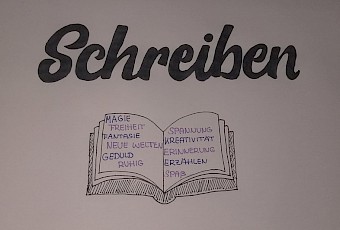 Schreiben
MAGIE
FREIHEIT
FANTASIE
NEUE WELTEN
GEDULD
RUHIG
SPANNUNG
KREATIVITÄT
ERINNERUNG
ERZÄHLEN
SPAß